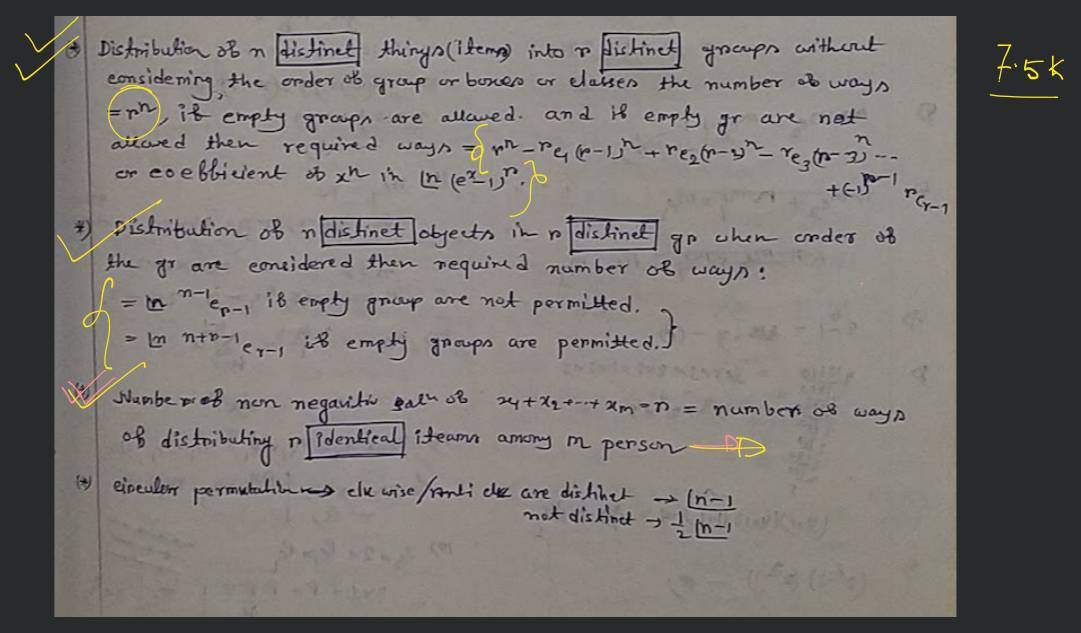 7.5k
*) Distribution of n distinct things(items) into r distinct groups without
considering the order of group or boxes or classes the number of ways
= rⁿ, if empty groups are allowed. and if empty gr are not
allowed then required ways = { rⁿ - ʳc₁ (r-1)ⁿ + ʳc₂ (r-2)ⁿ - ʳc₃ (r-3)ⁿ ...
+(-1)ʳ⁻¹ ʳcᵣ₋₁
or coefficient of xⁿ in ⌊n (eˣ-1)ʳ. }
*) Distribution of n distinct objects in r distinct gr when order of
the gr are considered then required number of ways :
= ⌊n ⁿ⁻¹cᵣ₋₁ if empty group are not permitted.
= ⌊n ⁿ⁺ʳ⁻¹cᵣ₋₁ if empty groups are permitted. }
Number of non negative of x₁+x₂+...+xₘ=n = number of ways
of distributing n identical iteams among m person →
(*) circular permutation → clk wise/Anti clk are distinct → ⌊n-1
not distinct → ½ ⌊n-1